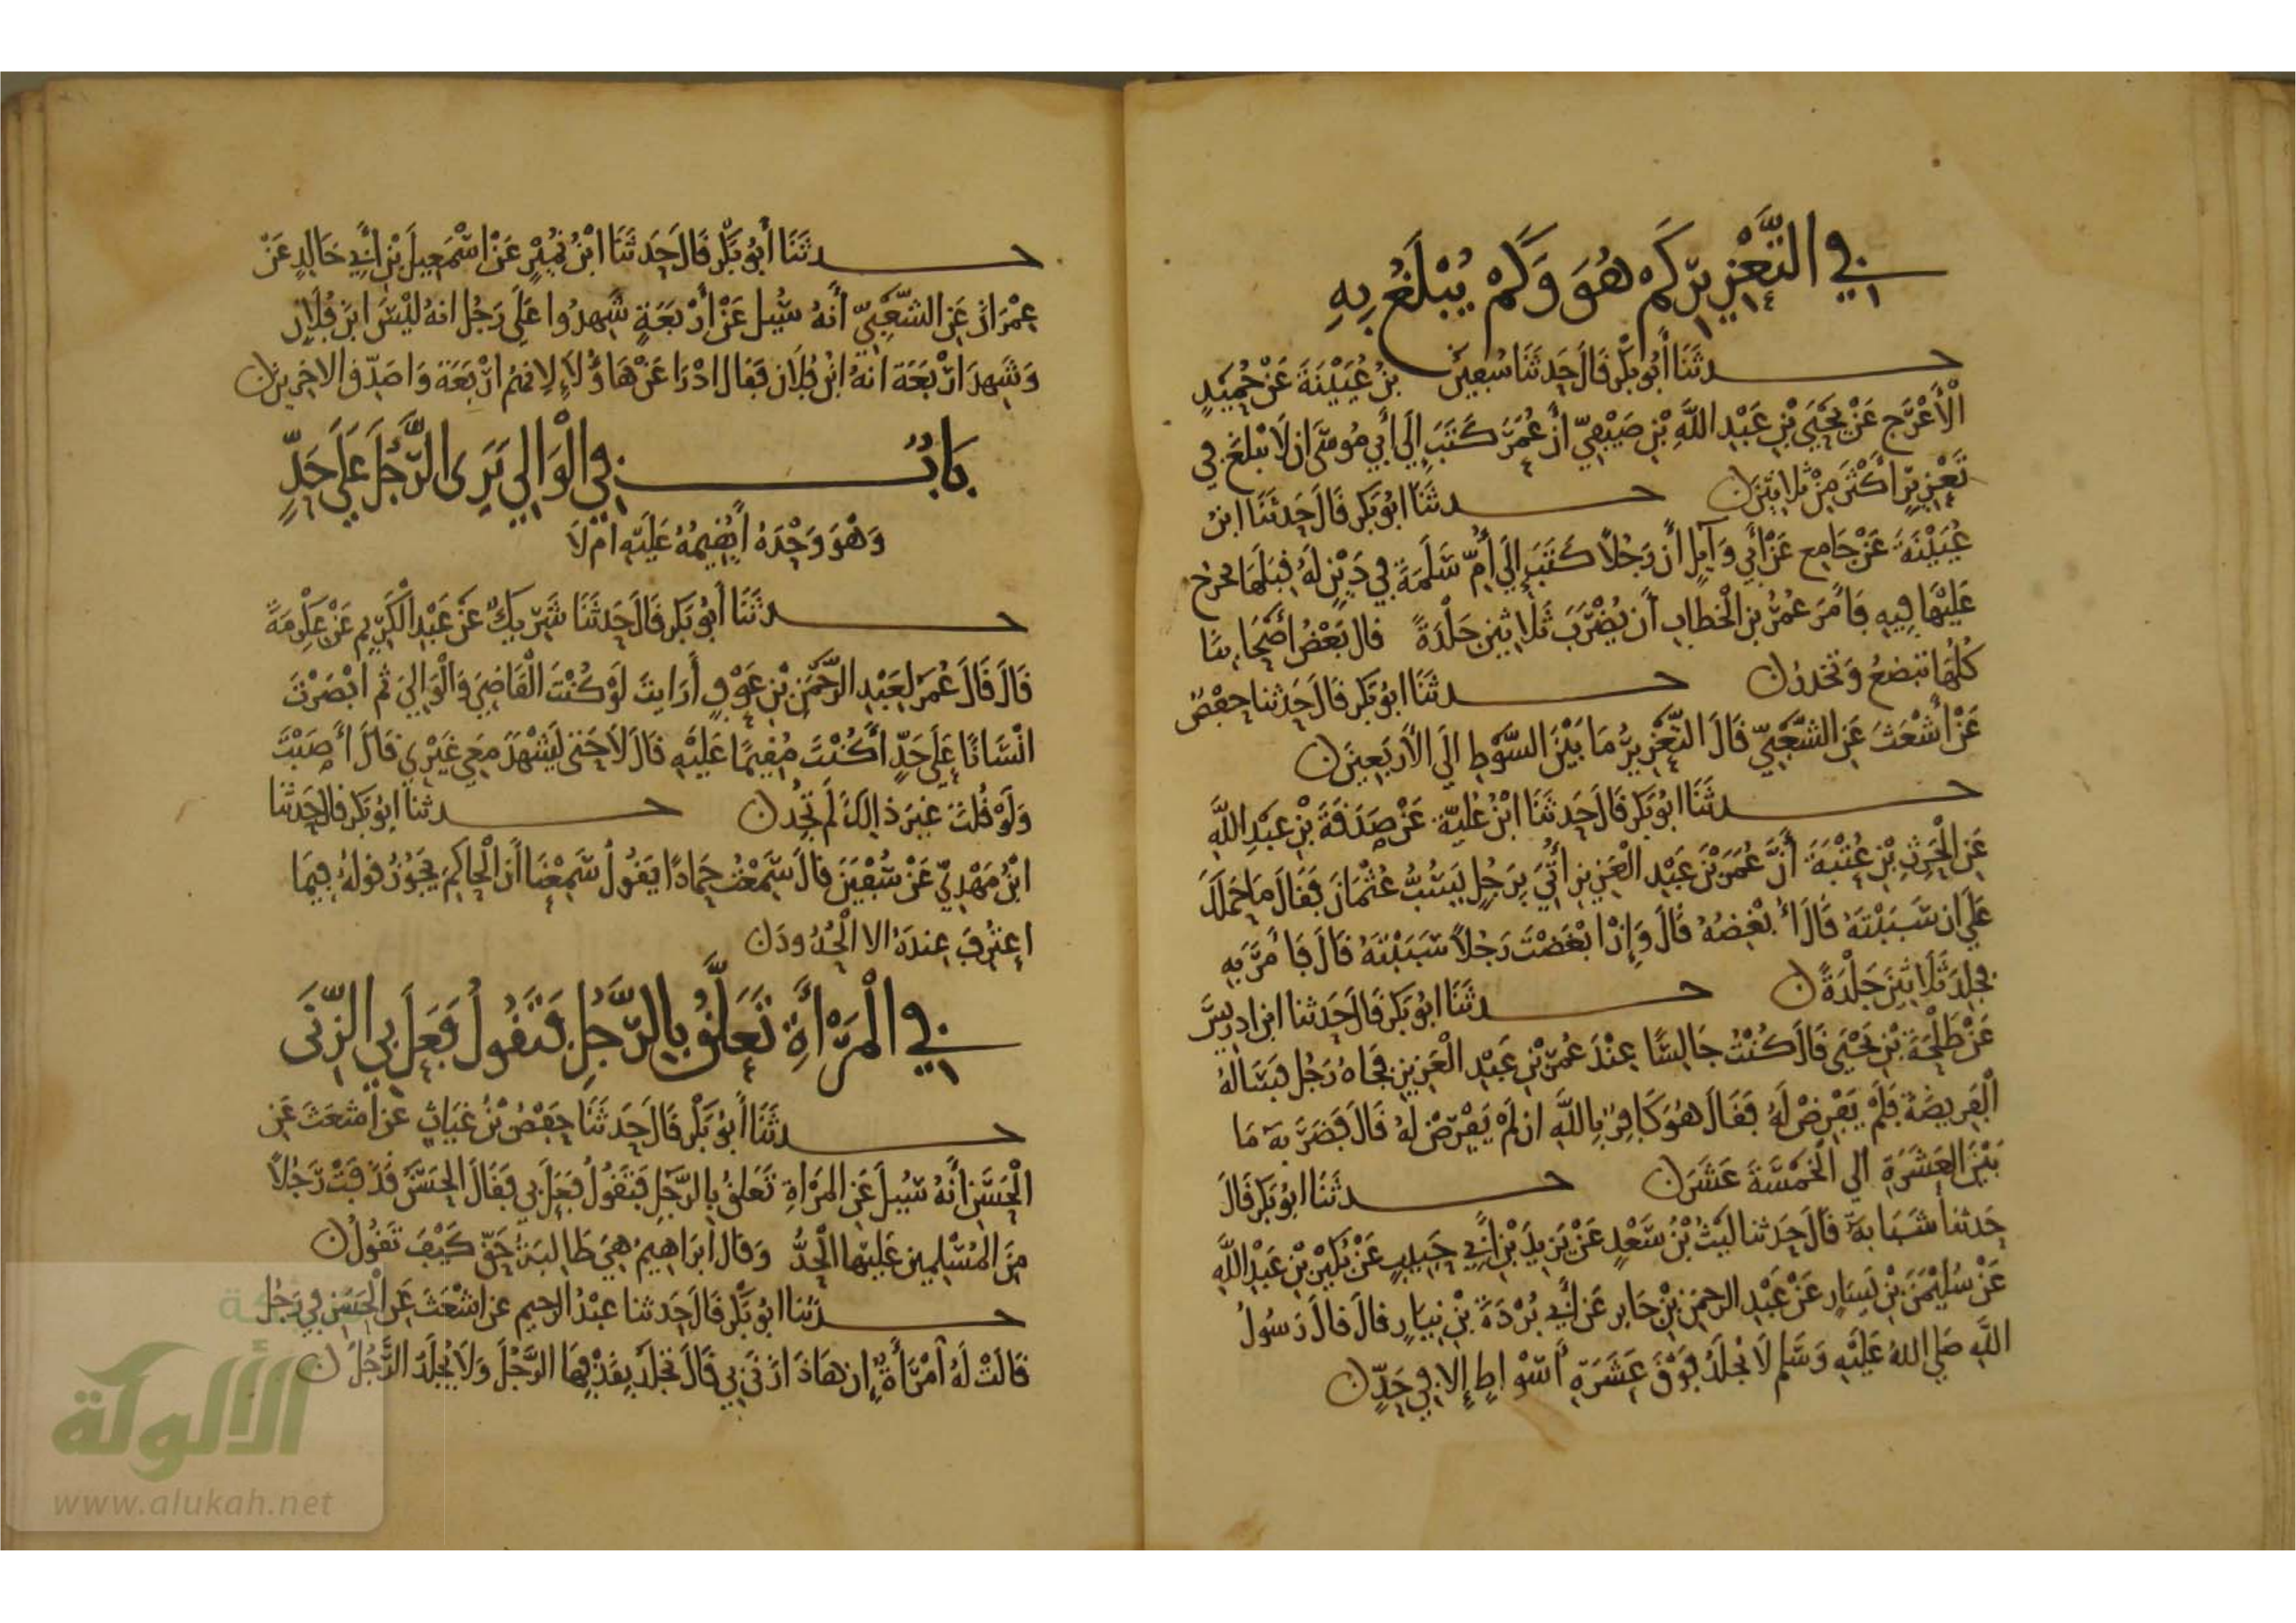 في التَّعْزِيرِ كَمْ هُوَ وَكَمْ يُبْلَغُ بِهِ
حدثَنَا أَبُو بَكْرٍ قَالَ حَدثَنَا سُفيٰنُ بنُ عُيَيْنَةَ عَنْ حُمَيْدٍ
الْأَعْرَجِ عَنْ يَحْيَى بْنِ عَبْدِ اللَّهِ بْنِ صَيْفِيّ أنَّ عُمَرَ كَتَبَ إِلَى أَبِي مُوسَى ان لَا يبْلغَ فِي
تَعْزِيرٍ أَكْثَرَ مِنْ ثلاثينَ حدثَنَا ابُو بَكر قَالَ حَدثَنَا ابنُ
عُيَيْنَةَ عَنْ جَامِعٍ عَنْ أَبِي وَآئِلٍ أَن رَجُلًا كَتَبَ إِلَى أُمِّ سَلَمَةَ فِي دَيْنٍ لَهُ قِبَلَهَا يحرج
عَلَيْهَا فِيهِ فَأَمَرَ عُمَرُ بن الْخطابِ أَن يُضْرَبَ ثَلَاثِينَ جَلْدَةً قال بَعْضُ أَصْحَابِنَا
كُلُهَا تبضعُ وَتحْدرُ حدثَنَا ابُو بَكر قَالَ حَدثنا حَفْصٌ
عَنْ أَشْعَثَ عَنِ الشَّعْبِيِّ قَالَ التَّعْزِيرُ مَا بَيْنَ السَّوْطِ إلَى الْأَرْبَعِينَ
حدثَنَا ابُو بَكر قَالَ حَدثَنَا ابْنُ عُلَيَّةَ عَنْ صَدَقَةَ بْنِ عَبْدِ اللَّهِ
عَنِ الْحٰرِثِ بْنِ عُتْبَةَ أَنَّ عُمَرَ بْنَ عَبْدِ الْعَزِيزِ أُتِيَ بِرَجُلٍ يَسُبُّ عُثْمَانَ فَقَالَ مَا حَمَلَكَ
عَلَى ان سَبَبْتَهُ قَالَ أُبْغِضُهُ قَالَ وَإِنْ أَبْغَضْتَ رَجُلًا سَبَبْتَهُ قَالَ فَأَمَرَ بِهِ
فجُلِدَ ثَلَاثِينَ جَلْدَةً حدثَنَا ابُو بَكر قَالَ حَدثنا ابن ادريسَ
عَنْ طَلْحَةَ بْنِ يَحْيَى قَالَ كُنْتُ جَالِسًا عِنْدَ عُمَرَ بْنِ عَبْدِ الْعَزِيزِ فجَاءَهُ رَجُل فسَالَهُ
الْفَرِيضَةَ فَلَمْ يَفْرِضْ لَهُ فَقَالَ هُوَ كَافِرٌ بِاللَّهِ ان لَمْ يَفْرِضْ لَهُ قَالَ فَضَرَبَهُ مَا
بَيْنَ العَشَرَةِ الى الْخَمْسَةَ عَشَرَ حدثَنَا ابُو بَكر قَالَ
حَدثنا شَبَابَةُ قَالَ حَدثنا لَيْثُ بْنُ سَعْدٍ عَنْ يَزِيدَ بْنِ أَبِي حَبِيبٍ عَنْ بُكَيْرِ بْنِ عَبْدِ اللَّهِ
عَنْ سُلَيْمٰنَ بْنِ يَسَارٍ عَنْ عَبْدِ الرحمنِ بْنِ جَابر عَن أَبِي بُرْدَةَ بْنِ نِيَارٍ قالَ قالَ رَسُولُ
اللَّهِ صَلى اللهُ عَلَيْهِ وَسَلم لَا يُجلَدُ فَوْقَ عَشَرَةِ أَسْوَاطٍ إِلا فِي حَدٍّ
حدثَنَا أَبُو بَكْرٍ قَالَ حَدثَنَا ابْنُ نُمَيْرٍ عَنْ اسْمٰعِيلَ بْنِ أَبِي خَالِدٍ عَنْ
عِمْرَانَ عَنِ الشَّعْبِيِّ أَنَّهُ سُئِل عَنْ أَرْبَعَةٍ شَهِدُوا عَلَى رَجُل انهُ ليْسَ ابن فُلَانٍ
وَشَهِدَ ارْبَعَة انهُ ابْنُ فلَان فَقَال ادْرَا عَنْ هَاؤُلَاءِ لِانهُمُ ارْبَعَة وَاصَدّق الاخِرِينَ
بَابُ فِي الْوَالِي يَرَى الرَّجُلَ عَلَى حَدٍّ
وَهُوَ وَحْدَهُ أَيُقِيمُهُ عَلَيْهِ ام لَا
حدثَنَا أبُو بَكر قَالَ حَدثَنَا شَرِيكٌ عَنْ عَبْدِ الْكَرِيمِ عَنْ عِكْرِمَةَ
قَالَ قَالَ عُمَرُ لِعَبْدِ الرَّحْمٰنِ بْنِ عَوْفٍ أَرَايتَ لَوْ كُنْتَ الْقَاضِيَ وَالْوَالِيَ ثم ابْصَرْتَ
انْسَانًا عَلَى حَدٍّ أَكُنْتَ مُقِيمًا عَلَيْهِ قَالَ لَا حَتى يَشْهَدَ مَعِي غَيْرِي قَالَ أَصَبْتَ
وَلَوْ قُلْتَ غيرَ ذَالِكَ لَمْ تجُدْ حدثنا ابُو بَكر قال حَدثنا
ابْنُ مَهْدِيٍّ عَنْ سُفْيٰنَ قالَ سَمِعْتُ حَمادًا يَقُولُ سَمِعْنَا أَن الْحَاكِمَ يَجُوزُ قولهُ فِيمَا
اعتُرِفَ عِندَهُ الا الْحُدُودَ
فِي الْمَرْأَةِ تَعَلَّقُ بِالرَّجُلِ فَتَقُولُ فَعَلَ بِيَ الزِّنَى
حدثَنَا أَبُو بَكْرٍ قَالَ حَدثَنَا حَفْصُ بْنُ غيَاثٍ عَن أَشعَثَ عَنِ
الْحَسَنِ أَنَّهُ سُئِلَ عَنِ المَرْاةِ تَعَلقُ بِالرَّجُلِ فَتَقُولُ فَعَلَ بِي فَقَالَ الحَسَنُ قَذَفتْ رَجُلًا
مِنَ المُسْلِمِينَ عَلَيْهَا الْحَدُّ وَقَالَ ابرَاهِيمُ هِيَ طَالِبَةُ حَقٍّ كَيْفَ تَقُولُ
حدثنا ابُو بَكْر قَالَ حَدثنا عبْدُ الرحِيمِ عن اشْعَثَ عَنِ الْحَسَنِ فِي رَجُلٍ
قَالَتْ لَهُ امْرَأَةٌ إِن هَاذَا زَنَى بِي قَالَ تجْلَدُ بِقَذْفِهَا الرَّجُلَ وَلَا يُجلَدُ الرَّجُلُ
الألوكة
www.alukah.net